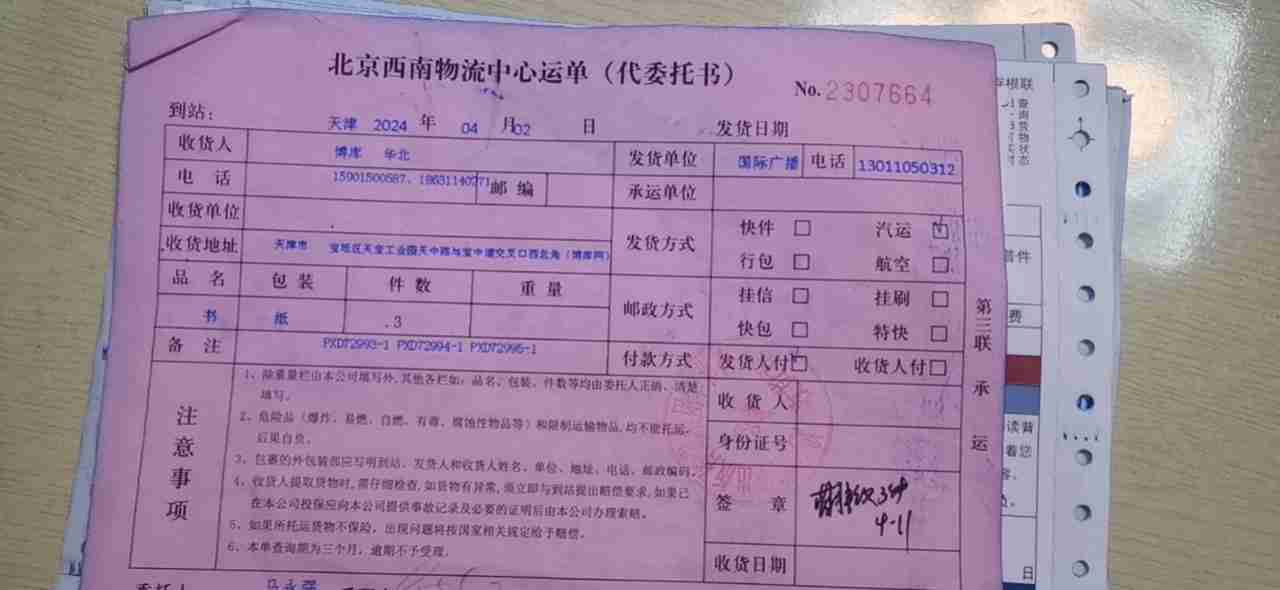 北京西南物流中心运单（代委托书）
No.2307664
到站：
天津 2024 年 04 月02 日 发货日期
收货人 博库 华北 发货单位 国际广播 电话 13011050312
电 话 15901500587、18631140771 邮编 承运单位
收货单位
收货地址 天津市 宝坻区天宝工业园天中路与宝中道交叉口西北角（博库网）
发货方式 快件 □ 汽运 □
行包 □ 航空 □
品 名 包装 件数 重量
邮政方式 挂信 □ 挂刷 □
书 纸 .3
快包 □ 特快 □
备 注 PXD72993-1 PXD72994-1 PXD72995-1
付款方式 发货人付□ 收货人付□
注意事项
1、除重量栏由本公司填写外,其他各栏如：品名、包装、件数等均由委托人正确、清楚
填写。
2、危险品（爆炸、易燃、自燃、有毒、腐蚀性物品等）和限制运输物品,均不能托运,
后果自负。
3、包裹的外包装都应写明到站、发货人和收货人姓名、单位、地址、电话、邮政编码。
4、收货人提取货物时,需仔细检查,如货物有异常,须立即与到站提出赔偿要求,如果已
在本公司投保应向本公司提供事故记录及必要的证明后由本公司办理索赔。
5、如果所托运货物不保险，出现问题将按国家相关规定给予赔偿。
6、本单查询期为三个月，逾期不予受理。
收 货 人
身份证号
签 章
4-11
收货日期
第三联 承运
委托人 马永强
存根联
普件
费
读背
着您
日